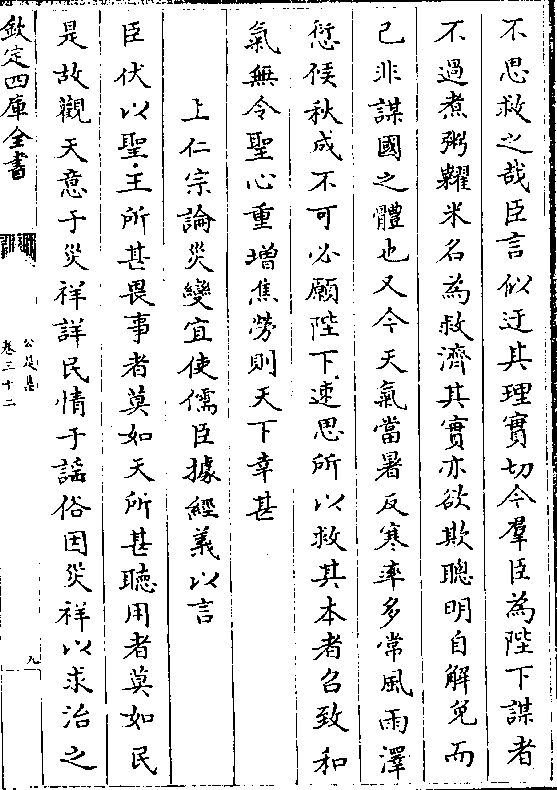 不思救之哉臣言似迂其理實切今羣臣為陛下謀者
不過煮粥糶米名為救濟其實亦欲欺聰明自解免而
已非謀國之體也又今天氣當暑反寒率多常風雨澤
愆候秋成不可必願陛下速思所以救其本者召致和
氣無令聖心重增焦勞則天下幸甚
上仁宗論災變宜使儒臣據經義以言
臣伏以聖主所甚畏事者莫如天所甚聽用者莫如民
是故觀天意于災祥詳民情于謠俗因災祥以求治之
欽定四庫全書
公是集
卷三十二
九